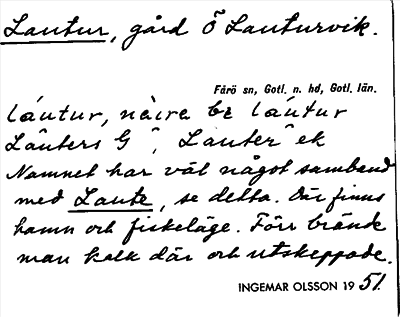 Lautur, gård Ö Lauturvik.
Fårö sn, Gotl. n. hd, Gotl. län.
láutur, nàira be láutur
Lauters G ^, Lauter^ ek
Namnet har väl något samband
med Laute, se detta. Där finns
hamn och fiskeläge. Förr brände
man kalk där och utskeppade.
INGEMAR OLSSON 1951.